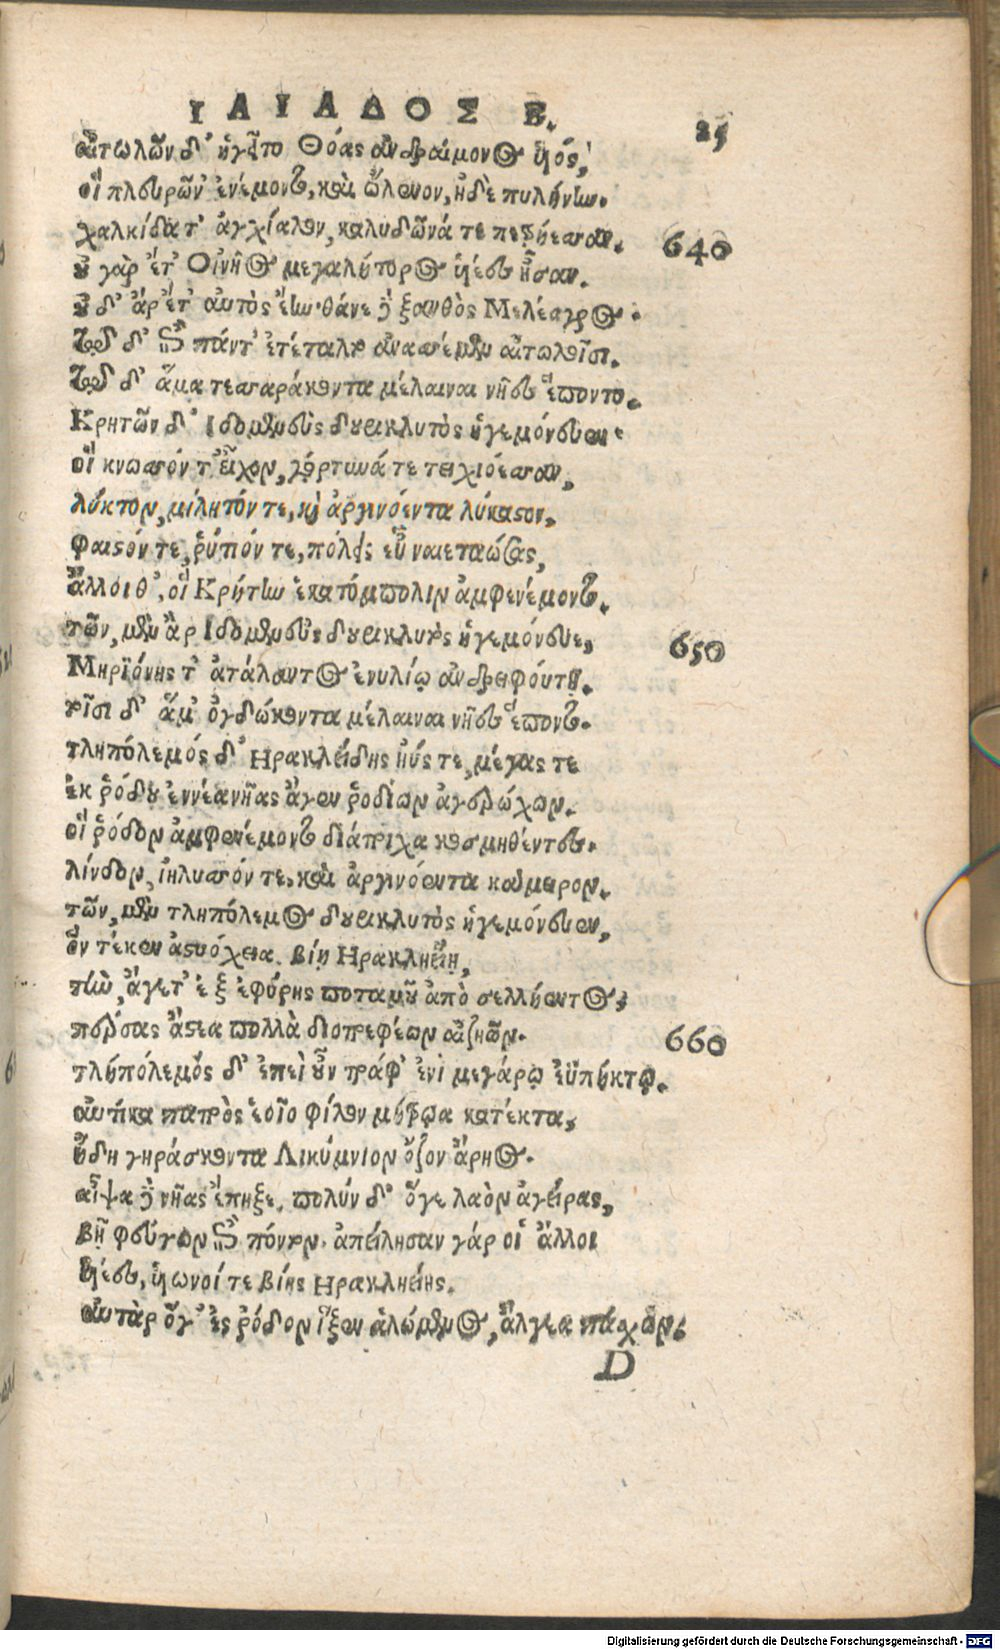 ΙΛΙΑΔΟΣ Β.
25
αἰτωλῶν δ' ἡγεῖτο Θόας ἀνδραίμονος υἱός,
οἳ πλευρῶν' ἐνέμοντο, καὶ ὤλενον, ἠδὲ πυλήνην.
χαλκίδα τ' ἀγχίαλον, καλυδῶνά τε πετρήεσσαν. 640
οὐ γὰρ ἔτ' Οἰνῆος μεγαλήτορος υἱέες ἦσαν.
οὐδ' ἄρ' ἔτ' αὐτὸς ἔην· θάνε δὲ ξανθὸς Μελέαγρος.
τῷ δ' ἐπὶ πάντ' ἐτέταλτο ἀνασσέμεν αἰτωλοῖσι.
τῷ δ' ἅμα τεσσαράκοντα μέλαιναι νῆες ἕποντο.
Κρητῶν δ' Ιδομενεὺς δουρικλυτὸς ἡγεμόνευεν·
οἳ κνωσσόν τ' εἶχον, γόρτυνά τε τειχιόεσσαν,
λύκτον, μίλητόν τε, καὶ ἀργινόεντα λύκαστον,
φαιστόν τε, ῥύτιόν τε, πόλεις εὖ ναιεταώσας,
ἄλλοι θ', οἳ Κρήτην ἑκατόμπολιν ἀμφενέμοντο.
τῶν, μὲν ἂρ Ιδομενεὺς δουρικλυτὸς ἡγεμόνευε, 650
Μηριόνης τ' ἀτάλαντος ἐνυλίῳ ἀνδρειφόντῃ.
τοῖσι δ' ἅμ' ὀγδώκοντα μέλαιναι νῆες ἕποντο.
τληπόλεμός δ' Ηρακλείδης ἠΰς τε, μέγας τε
ἐκ ῥόδου ἐννέα νῆας ἄγεν ῥοδίων ἀγερώχων.
οἳ ῥόδον ἀμφενέμοντο διάτριχα κοσμηθέντες.
λίνδον, ἰηλυσσόν τε, καὶ ἀργινόεντα κάμειρον.
τῶν, μὲν τληπόλεμος δουρικλυτὸς ἡγεμόνευεν,
ὃν τέκεν ἀστυόχεια βίῃ Ηρακληείῃ,
τὴν, ἄγετ' ἐξ ἐφύρης ποταμοῦ ἀπὸ σελλήεντος,
περσας ἄστεα πολλὰ διοτρεφέων αἰζηῶν. 660
τληπόλεμος δ' ἐπεὶ οὖν τράφ' ἐνὶ μεγάρῳ ἐϋπήκτῳ.
αὐτίκα πατρὸς ἑοῖο φίλον μήτρωα κατέκτα,
ἤδη γηράσκοντα Λικύμνιον ὄζον ἄρηος.
αἶψα δὲ νῆας ἔπηξε, πολύν δ' ὅγε λαὸν ἀγείρας,
βῆ φεύγων ἐπὶ πόντον. ἀπείλησαν γάρ οἱ ἄλλοι
υἱέες, υἱωνοί τε βίης Ηρακληείης.
αὐτὰρ ὅγ' ἐς ῥόδον ἷξεν ἀλώμενος, ἄλγεα πάσχων.
D
Digitalisierung gefördert durch die Deutsche Forschungsgemeinschaft - DFG